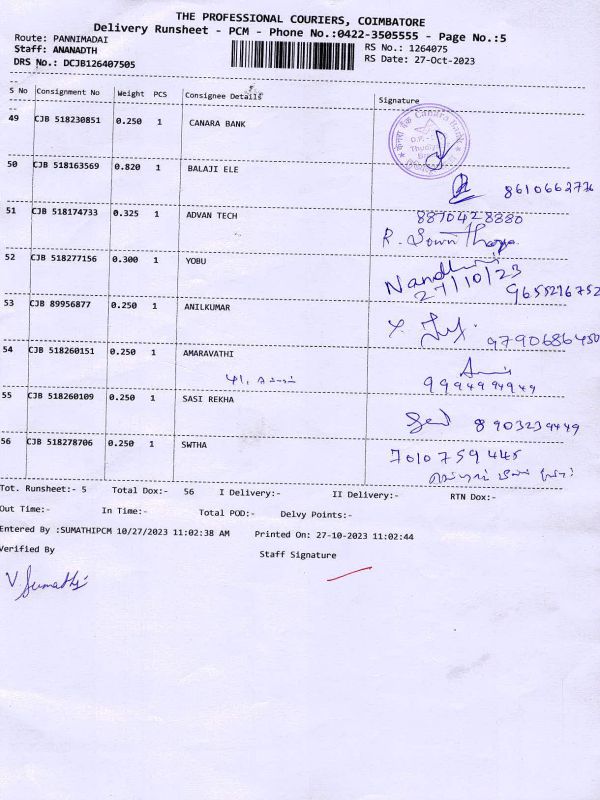 THE PROFESSIONAL COURIERS, COIMBATORE
Delivery Runsheet - PCM - Phone No.:0422-3505555 - Page No.:5
Route: PANNIMADAI
RS No.: 1264075
Staff: ANANADTH
RS Date: 27-Oct-2023
DRS No.: DCJB126407505
S No Consignment No Weight PCS Consignee Details Signature
49 CJB 518230851 0.250 1 CANARA BANK
Canara Bank
50 CJB 518163569 0.820 1 BALAJI ELE
8610662776
51 CJB 518174733 0.325 1 ADVAN TECH
8870428880
R.
52 CJB 518277156 0.300 1 YOBU
Nandhini
27/10/23
9655216752
53 CJB 89956877 0.250 1 ANILKUMAR
9790686450
54 CJB 518260151 0.250 1 AMARAVATHI
9994994949
55 CJB 518260109 0.250 1 SASI REKHA
8903239449
56 CJB 518278706 0.250 1 SWTHA
7010759445
Tot. Runsheet:- 5 Total Dox:- 56 I Delivery:- II Delivery:- RTN Dox:-
Out Time:- In Time:- Total POD:- Delvy Points:-
Entered By :SUMATHIPCM 10/27/2023 11:02:38 AM Printed On: 27-10-2023 11:02:44
Verified By Staff Signature
V. Sumathi